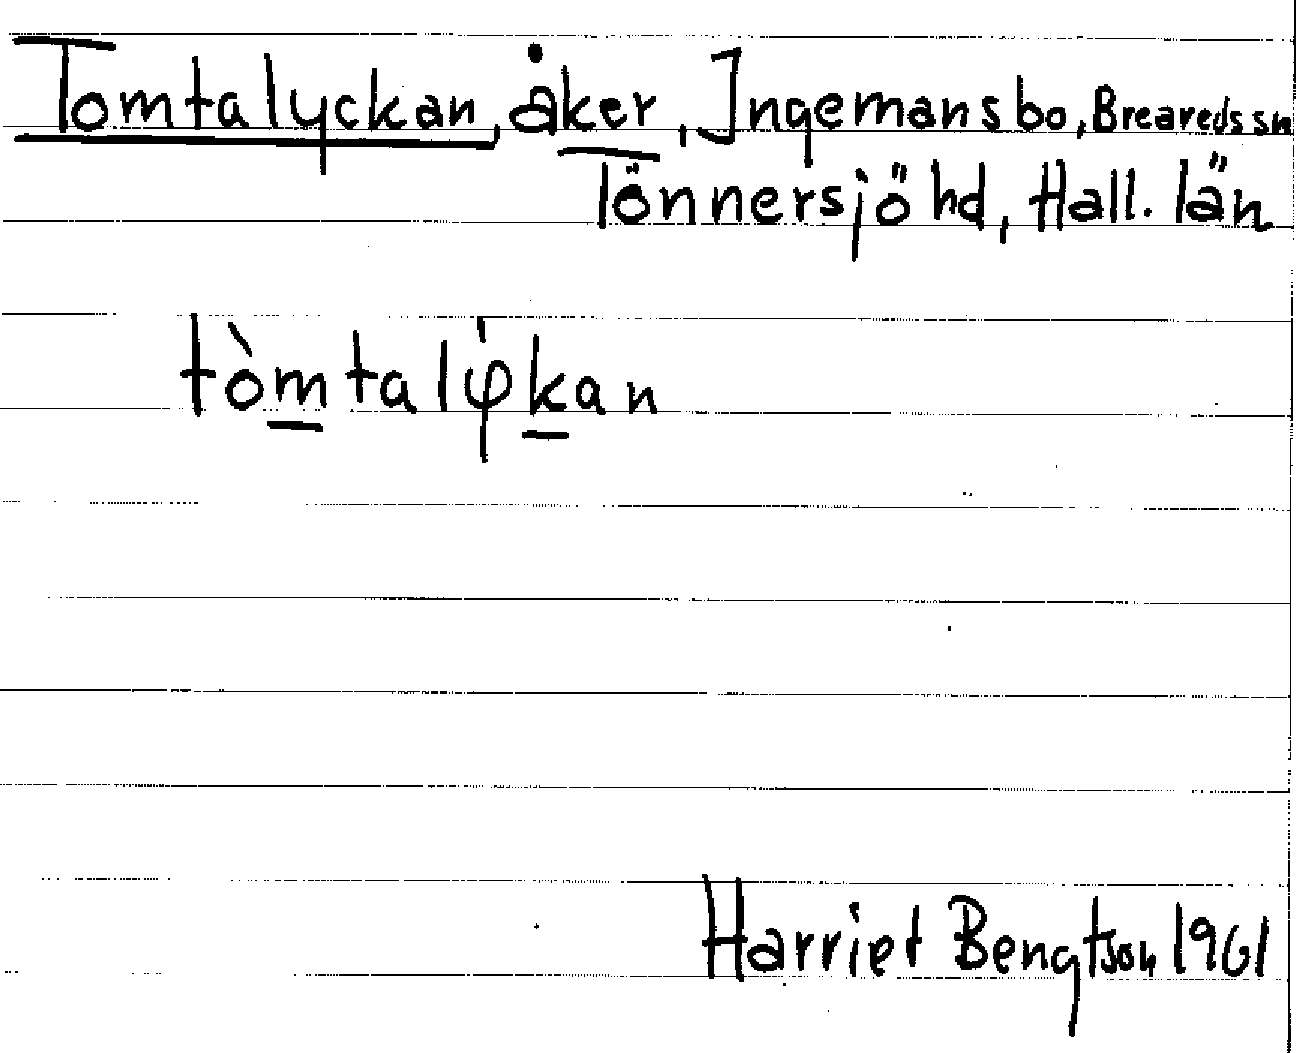 Tomtalyckan, åker, Ingemansbo, Breareds sn
Tönnersjö hd, Hall. län
tòm̲talφ̍k̲an
Harriet Bengtson 1961